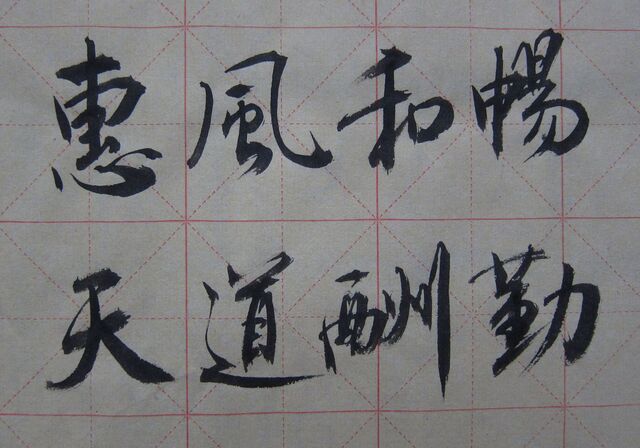 惠風和暢
天道酬勤